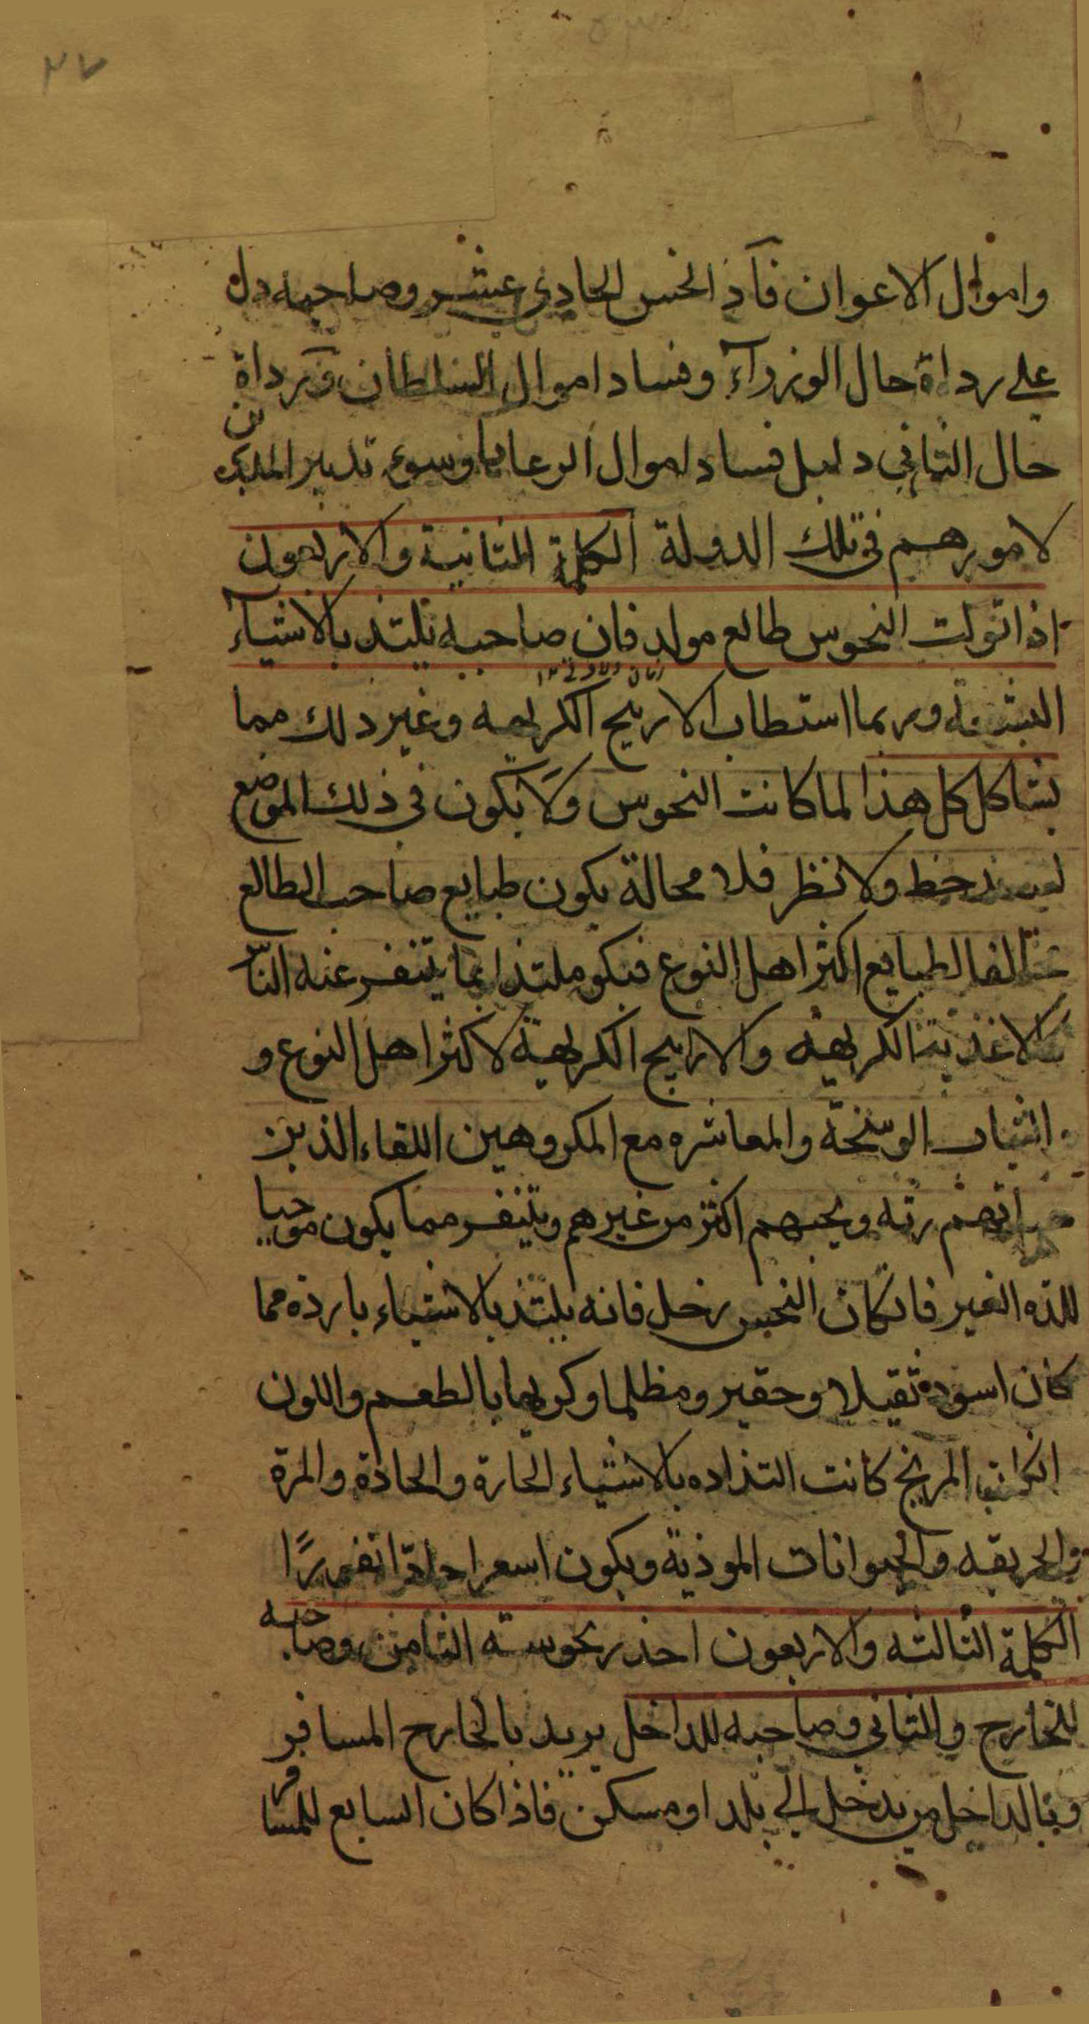 ٢٧
واموال الاعوان فآذ النحس الحادي عشر وصاحبه دل
على رداة حال الوزرآء وفساد اموال السلطان ورداة
حال الثاني دليل فساد اموال الرعايا وسوء تدبير المدبرين
لامورهم في تلك الدولة الكلمة الثانية والاربعون
اذا تولت النحوس طالع مولد فان صاحبه يلتذ بالاشيآء
البشعة وربما استطاب الاريح الكريهه وغير ذلك مما
يشاكل كل هذا لما كانت النحوس ولا يكون في ذلك الموضع
حظ ولا نظر فلا محالة يكون طبايع صاحب الطالع
مخالفا لطبايع اكثر اهل النوع فيكو ملتذا بما يتنفر عنه النا
كالاغذية الكريهة والاريح الكريهة لاكثر اهل النوع و
الثياب الوسخة والمعاشره مع المكروهين اللقاء الذين
رته ويحبهم اكثر من غيرهم ويتنفر مما يكون موجبا
للذه الغير فان كان النحس زحل فانه يلتذ بالاشياء بارده مما
كان اسوده ثقيلا وحقير ومظلما وكريها بالطعم واللون
المريخ كانت التذاده بالاشياء الحارة والحاذة والمرة
والحريقه والحيوانات الموذية ويكون
الكلمة الثالثه والاربعون احذر نحوسته الثامن وصاحبه
للخارج والثاني وصاحبه للداخل يريد بالخارج المسافر
وبالداخل من يدخل الى بلد او مسكن فاذا كان السابع للمسافر